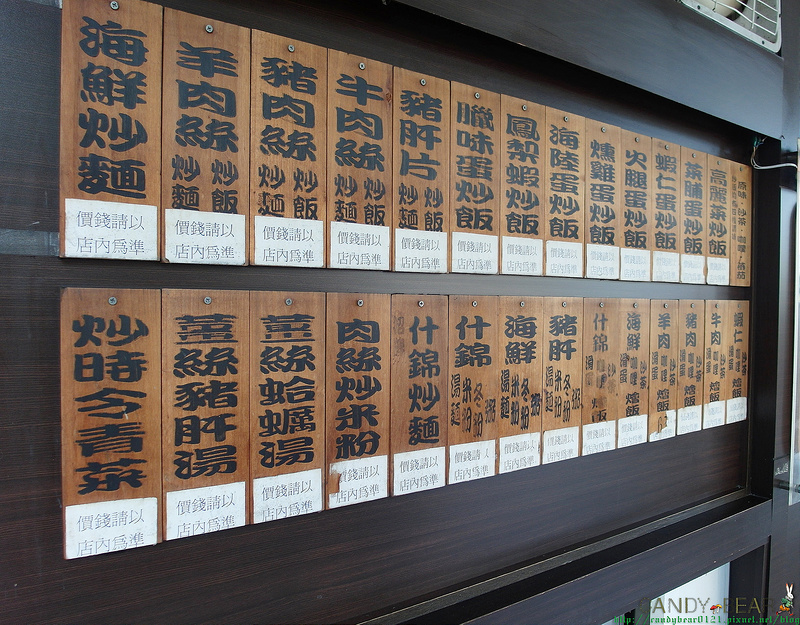 海鮮炒麵
價錢請以
店內爲準
羊肉絲
炒麵 炒飯
價錢請以
店內爲準
豬肉絲
炒麵 炒飯
價錢請以
店內爲準
牛肉絲
炒麵 炒飯
價錢請以
店內爲準
豬肝片
炒麵 炒飯
價錢請以
店內爲準
臘味蛋炒飯
價錢請以
店內爲準
鳳梨蝦炒飯
價錢請以
店內爲準
海陸蛋炒飯
價錢請以
店內爲準
燻雞蛋炒飯
價錢請以
店內爲準
火腿蛋炒飯
價錢請以
店內爲準
蝦仁蛋炒飯
價錢請以
店內爲準
菜脯蛋炒飯
價錢請以
店內爲準
高麗菜炒飯
價錢請以
店內爲準
炒時令青菜
價錢請以
店內爲準
薑絲豬肝湯
價錢請以
店內爲準
薑絲蛤蠣湯
價錢請以
店內爲準
肉絲炒米粉
價錢請以
店內爲準
什錦炒麵
價錢請以
店內爲準
什錦
湯麵 米粉 冬粉 粥
價錢請以
店內爲準
海鮮
湯麵 米粉 冬粉 粥
價錢請以
店內爲準
豬肝
湯麵 米粉 冬粉 粥
價錢請以
店內爲準
什錦
滑蛋 咖哩 沙茶 燴飯
價錢請以
店內爲準
海鮮
滑蛋 咖哩 沙茶 燴飯
價錢請以
店內爲準
羊肉
滑蛋 咖哩 沙茶 燴飯
價錢請以
店內爲準
豬肉
滑蛋 咖哩 沙茶 燴飯
價錢請以
店內爲準
牛肉
滑蛋 咖哩 沙茶 燴飯
價錢請以
店內爲準
蝦仁
滑蛋 咖哩 沙茶 燴飯
價錢請以
店內爲準
CANDY BEAR
http://candybear0121.pixnet.net/blog